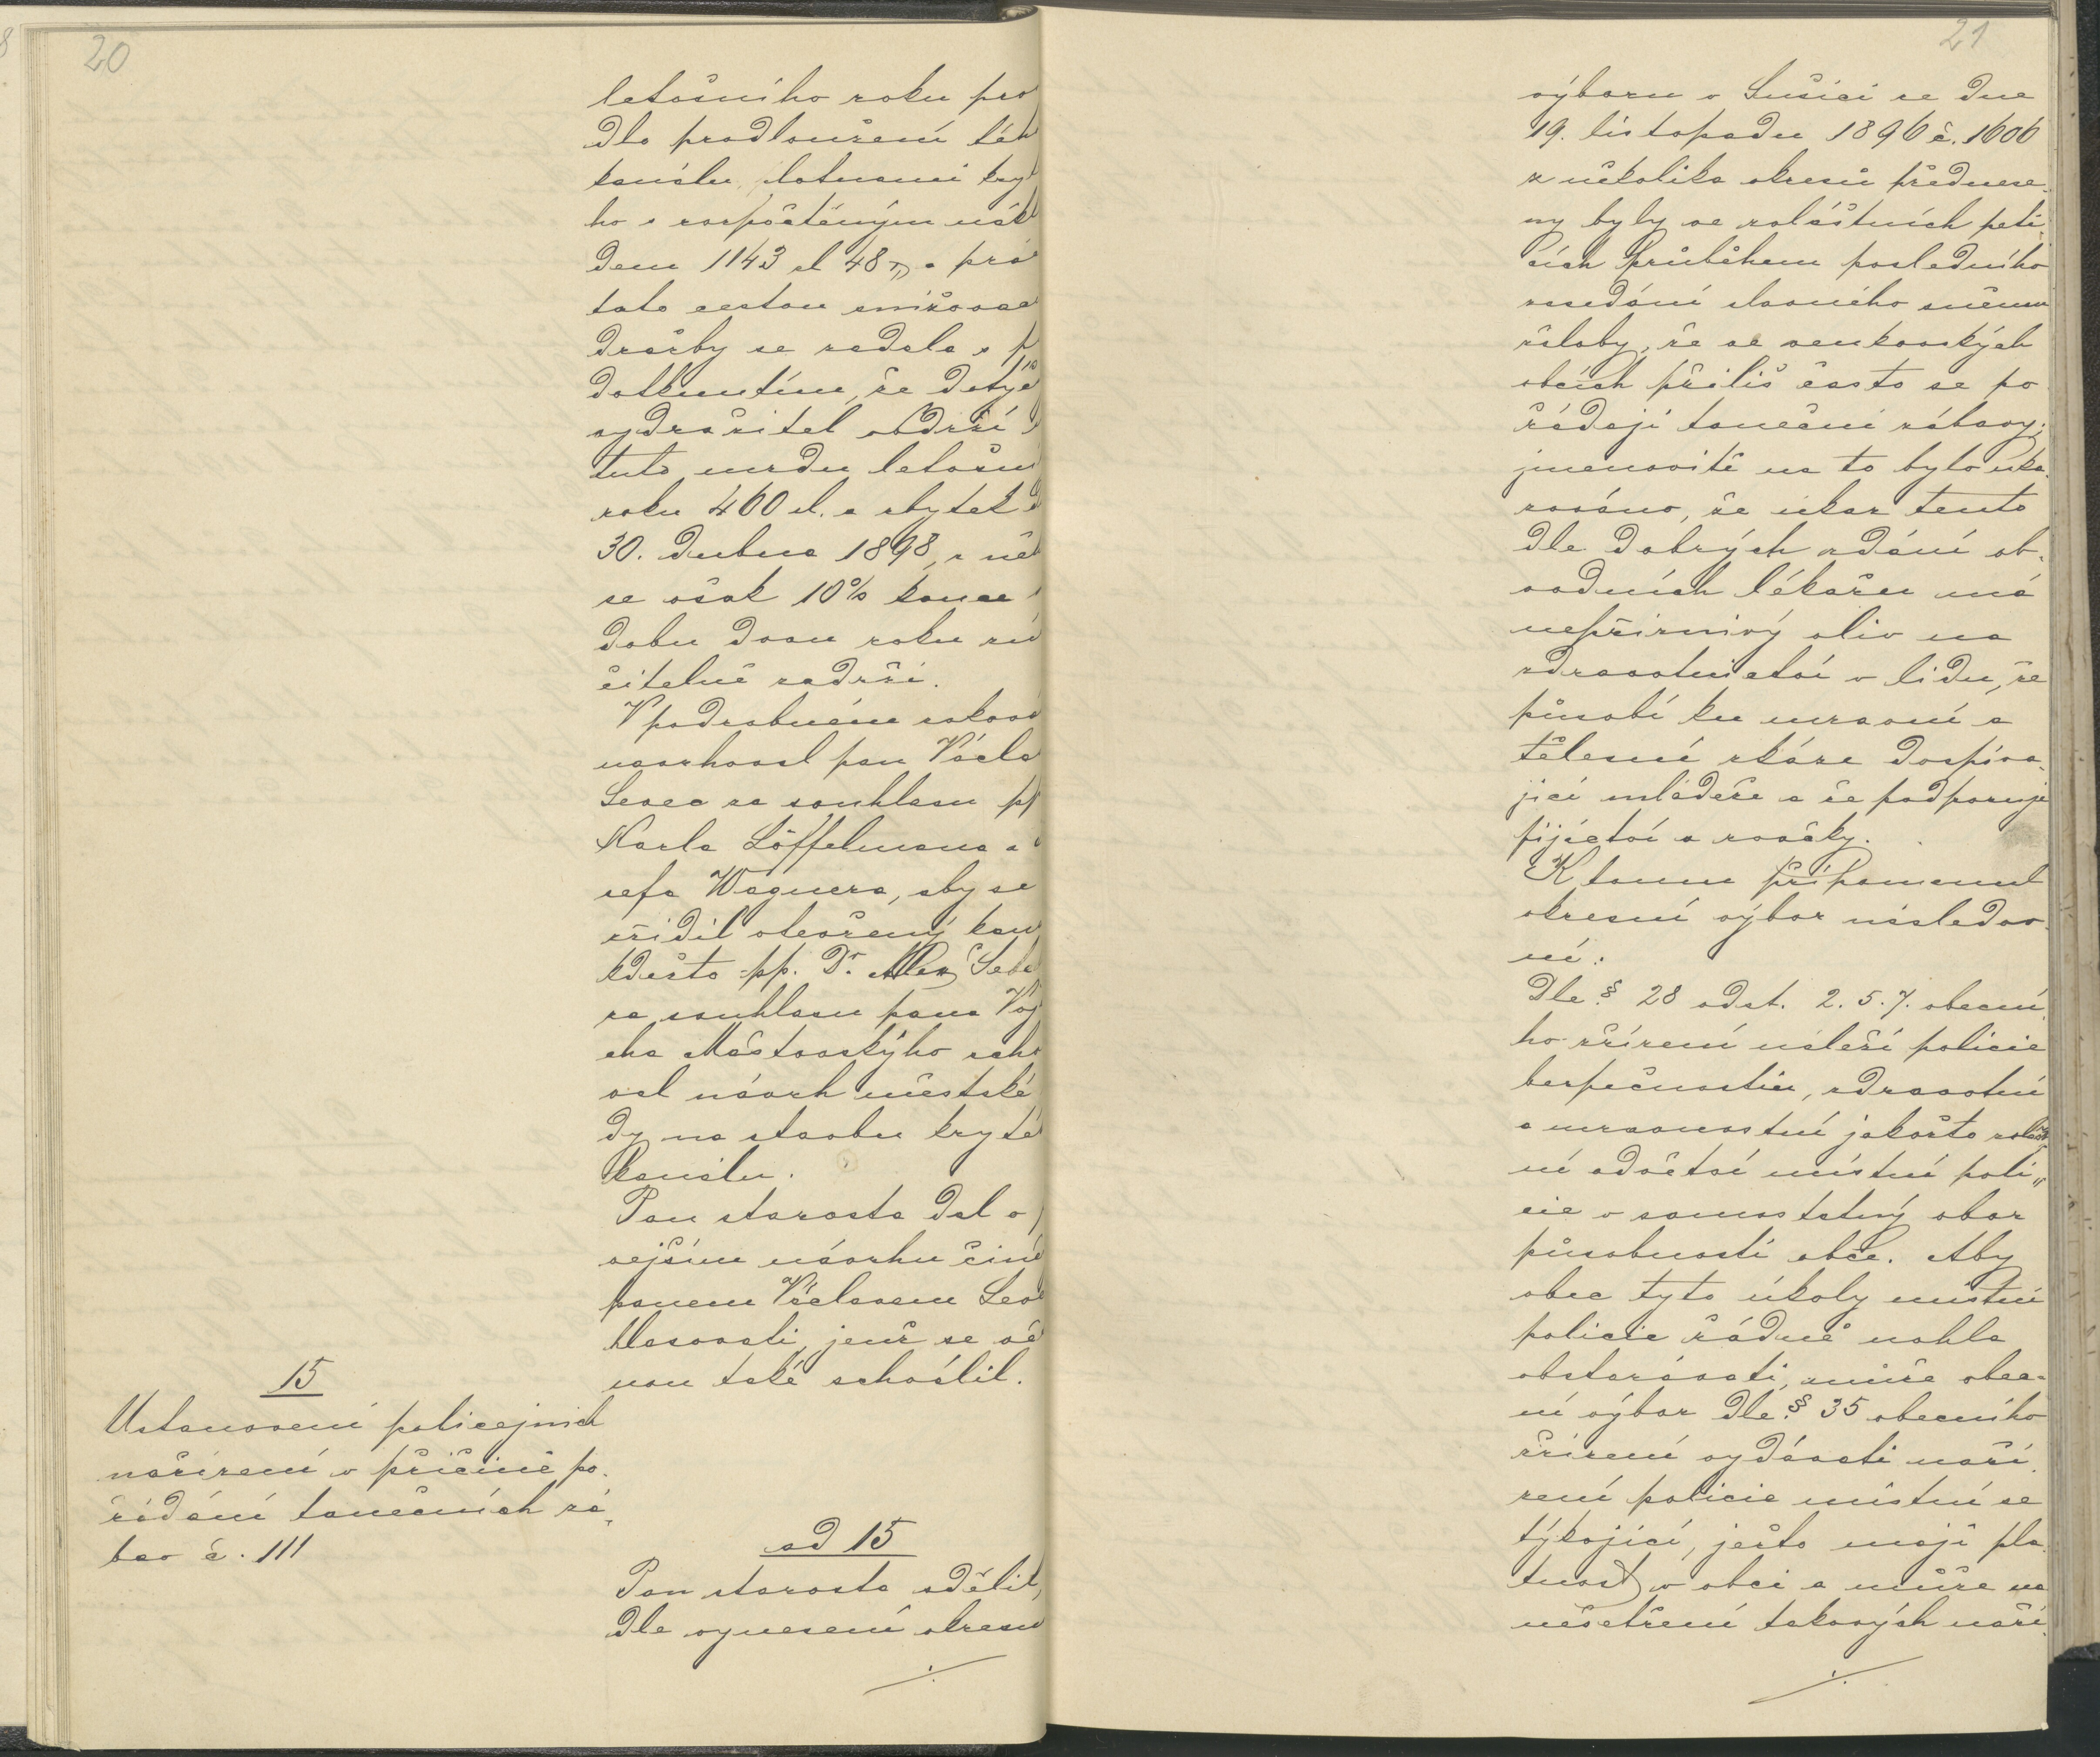 20
letošního roku pro
dlo prodloužení téh
kanálu, slatnami kry
ho s rozpočtěným nákl
dem 1143 zl 48 a prá
tato cestou snižovac
dražby se zadala s p
dotknutím, že dotyč
vydražitel obdrží
tuto mzdu letošní
roku 460 zl. a zbytek
30. dubna 1898, z ně
se však 10% kauce
dobu dvou roku zú
čitelně zadrží.
V podrobném roková
navrhoval pan Václa
Levec za souhlasu pp
Karla Löffelmana a
sefa Wagnera, aby se
zřídil otevřený kan
kdežto pp. Dr. Alex
za souhlasu pana Voj
cha Mástovskýho zach
val návrh městské
dy na stavbu kryté
kanálu.
Pan starosta dal o
zejším návrhu čině
panem Václavem Lev
hlasovati, jenž se vě
nou také schválil.
15
Ustanovení policejních
nařízení v příčině po-
řádání tanečních zá-
bav č. 111
ad 15
Pan starosta sdělil,
dle vynesení okresn
./.
21
výboru v Sušici ze dne
19. listopadu 1896 č. 1606
z několika okresů přednese-
ny byly ve zvláštních peti-
cích průběhem posledního
zasedání slavného sněmu
žaloby, že ve venkovských
obcích příliš často se po
řádají taneční zábavy;
jmenovitě na to bylo uka-
zováno, že úkaz tento
dle dobrých zdání ob-
vodních lékařu má
nepříznivý vliv na
zdravotnictví v lidu, že
působí ku mravní a
tělesní zkáze dospíva-
jící mládeže a že podporuje
pijáctví a rvačky.
K tomu připomenul
okresní výbor následov-
ní:
Dle § 28 odst. 2. 5. 7. obecní-
ho zřízení náleží policie
bezpečnostní, zdravotní
a mravnostní jakožto zvlášt
ní odvětví místní poli„
cie v samostatný obor
působnosti obce. Aby
obec tyto úkoly místní
policie řádně mohla
obstarávati, může obec-
ní výbor dle § 35 obecního
zřízení vydávati naří-
zení policie místní se
týkající, ježto mají pla-
tnost v obci a může na
nešetření takových naří-
./.